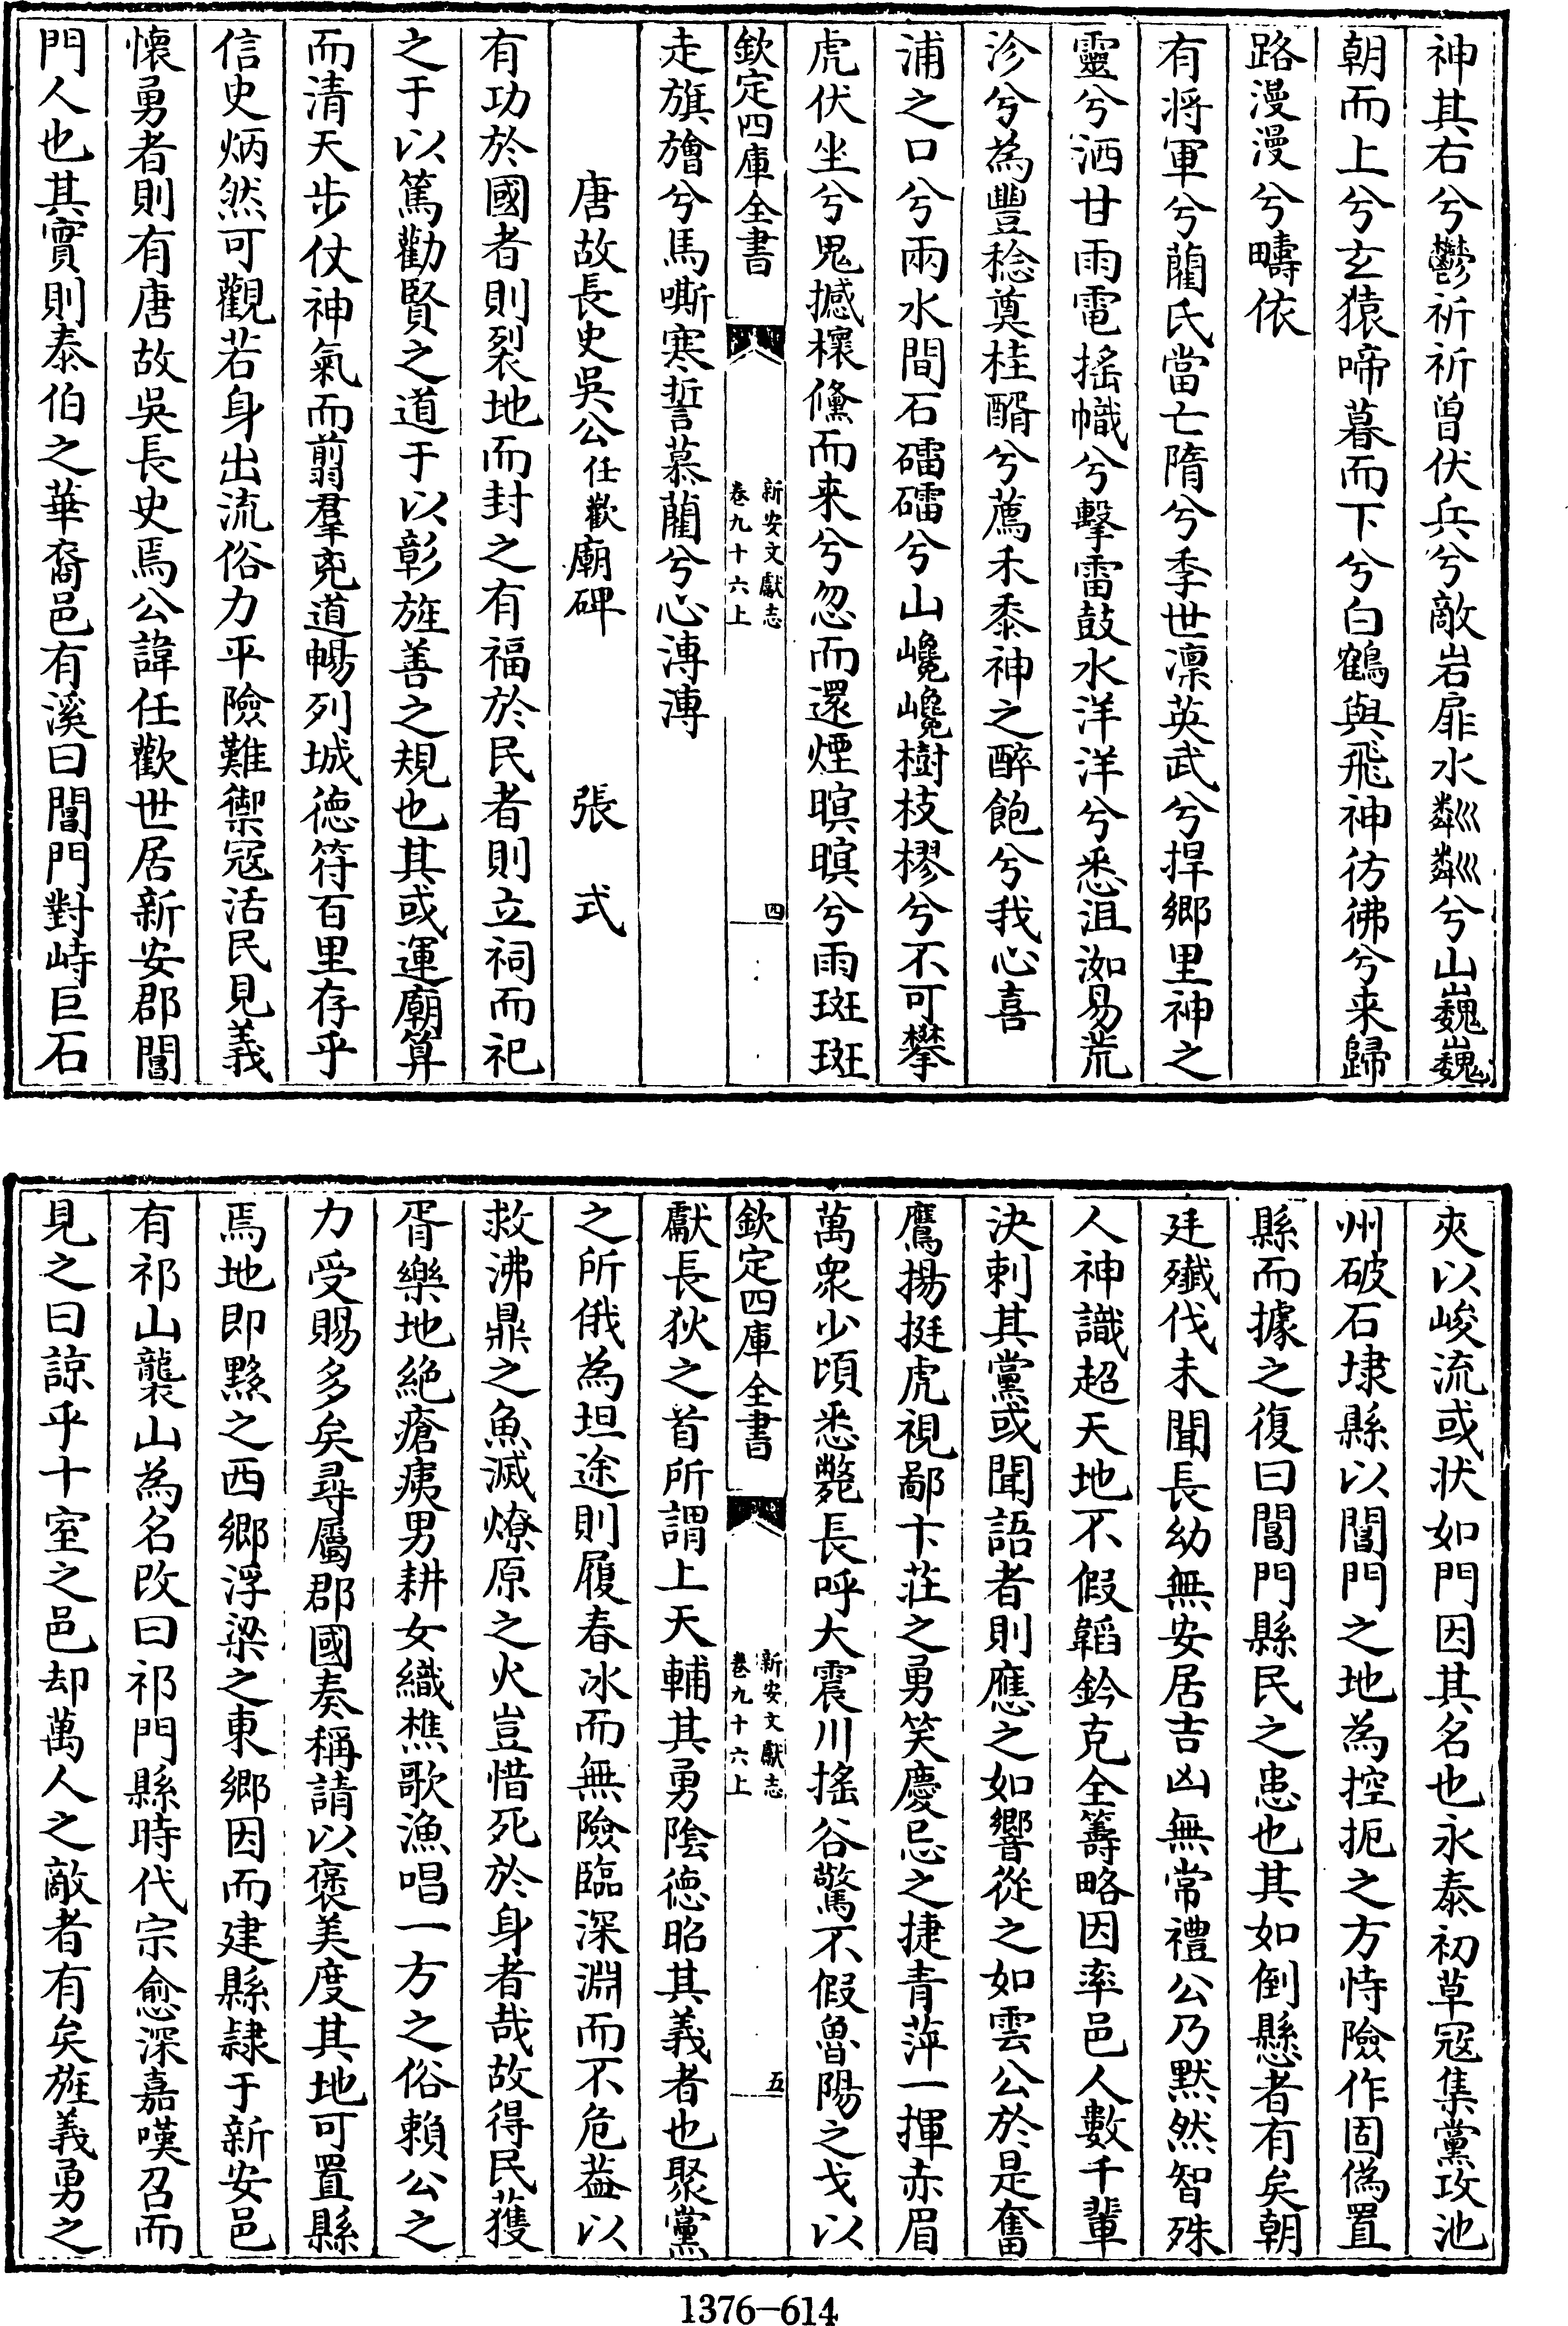 神其右兮鬱祈祈曾伏兵兮敵岩扉水粼粼兮山巍巍
朝而上兮玄猿啼暮而下兮白鶴與飛神彷彿兮来歸
路漫漫兮疇依
有将軍兮藺氏當亡隋兮季世凛英武兮捍鄉里神之
靈兮洒甘雨電搖幟兮擊雷鼓水洋洋兮悉沮洳易荒
沴兮為豐稔奠桂醑兮薦禾黍神之醉飽兮我心喜
浦之口兮兩水間石礌礌兮山巉巉樹枝樛兮不可攀
虎伏坐兮鬼撼櫰儵而来兮忽而還煙暝暝兮雨斑斑
欽定四庫全書
新安文獻志
卷九十六上
四
走旗旝兮馬嘶寒誓慕藺兮心漙漙
唐故長史吳公任歡廟碑 張式
有功於國者則裂地而封之有福於民者則立祠而祀
之于以篤勸賢之道于以彰旌善之規也其或運廟算
而清天步仗神氣而翦羣兇道暢列城徳符百里存乎
信史炳然可觀若身出流俗力平險難禦冦活民見義
懐勇者則有唐故吳長史焉公諱任歡世居新安郡閶
門人也其實則泰伯之華裔邑有溪曰閶門對峙巨石
夾以峻流或状如門因其名也永泰初草冦集黨攻池
州破石埭縣以閶門之地為控扼之方恃險作固偽置
縣而據之復曰閶門縣民之患也其如倒懸者有矣朝
廷殲伐未聞長幼無安居吉凶無常禮公乃默然智殊
人神識超天地不假韜鈐克全籌略因率邑人數千輩
決剌其黨或聞語者則應之如響從之如雲公於是奮
鷹揚挺虎視鄙卞莊之勇笑慶忌之捷青萍一揮赤眉
萬衆少頃悉斃長呼大震川搖谷驚不假魯陽之戈以
欽定四庫全書
新安文獻志
卷九十六上
五
獻長狄之首所謂上天輔其勇陰徳昭其義者也聚黨
之所俄為坦途則履春冰而無險臨深淵而不危葢以
救沸鼎之魚滅燎原之火豈惜死於身者哉故得民獲
胥樂地絶瘡痍男耕女織樵歌漁唱一方之俗賴公之
力受賜多矣尋屬郡國奏稱請以褒美度其地可置縣
焉地即黟之西鄉浮梁之東鄉因而建縣隷于新安邑
有祁山襲山為名改曰祁門縣時代宗愈深嘉嘆召而
見之曰諒乎十室之邑却萬人之敵者有矣旌義勇之
1376-614